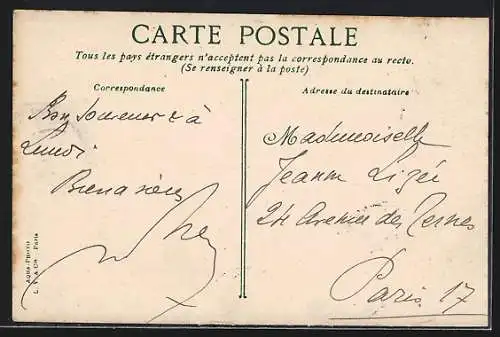 CARTE POSTALE
Tous les pays étrangers n'acceptent pas la correspondance au recto.
(Se renseigner à la poste)
Correspondance
Bon souvenir & à
Lundi
Bien à vous
Adresse du destinataire
Mademoiselle
Jeanne Lizée
24 Avenue des Ternes
Paris 17